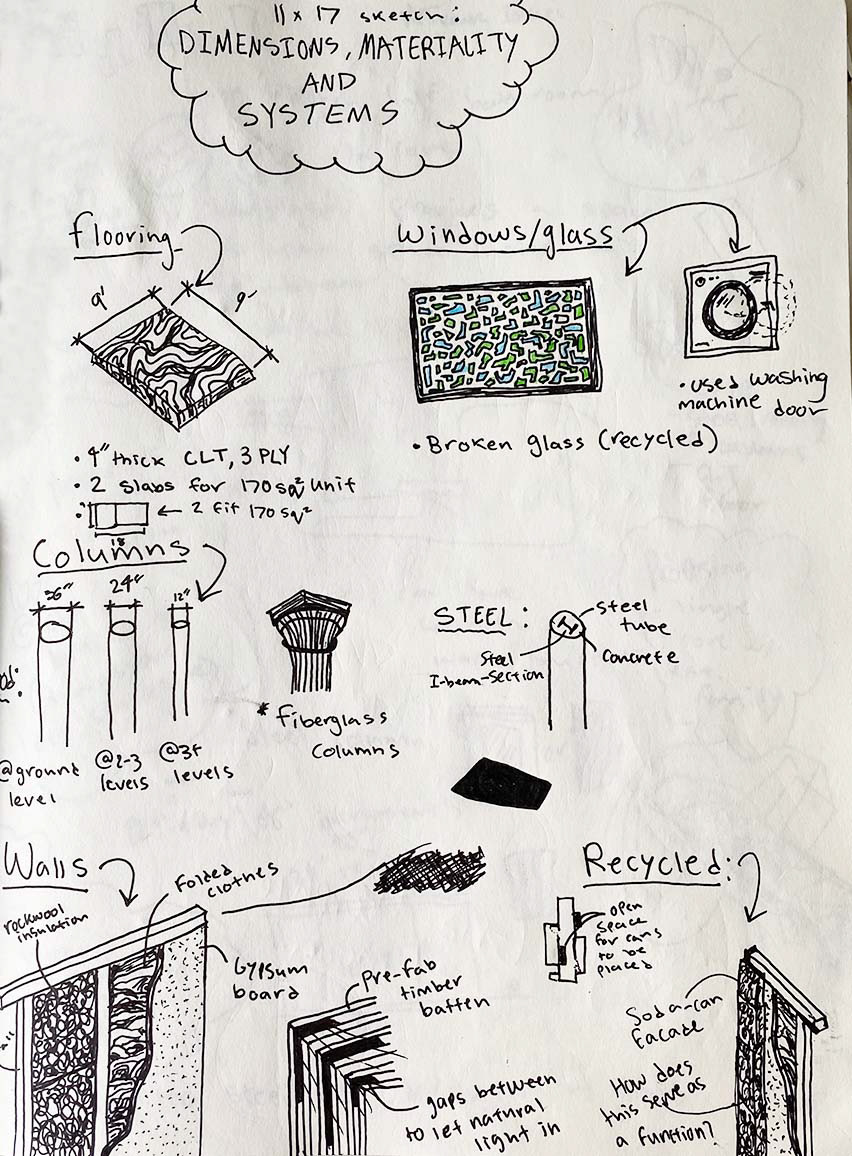 11 x 17 sketch:
DIMENSIONS, MATERIALITY
AND
SYSTEMS
flooring
9'
9'
• 4" thick CLT, 3 PLY
• 2 slabs for 170 sq² unit
← 2 fit 170 sq²
18
Windows/glass
• Broken glass (recycled)
• used washing
machine door
Columns
36"
24"
12"
@ground
level
@2-3
levels
@3+
levels
* fiberglass
columns
STEEL:
Steel
tube
Steel
I-beam-section
Concrete
Walls
rockwool
insulation
Folded
clothes
Gypsum
board
Pre-fab
timber
batten
gaps between
to let natural
light in
Recycled:
open
space
for cans
to be
placed
Soda-can
facade
How does
this serve as
a function?